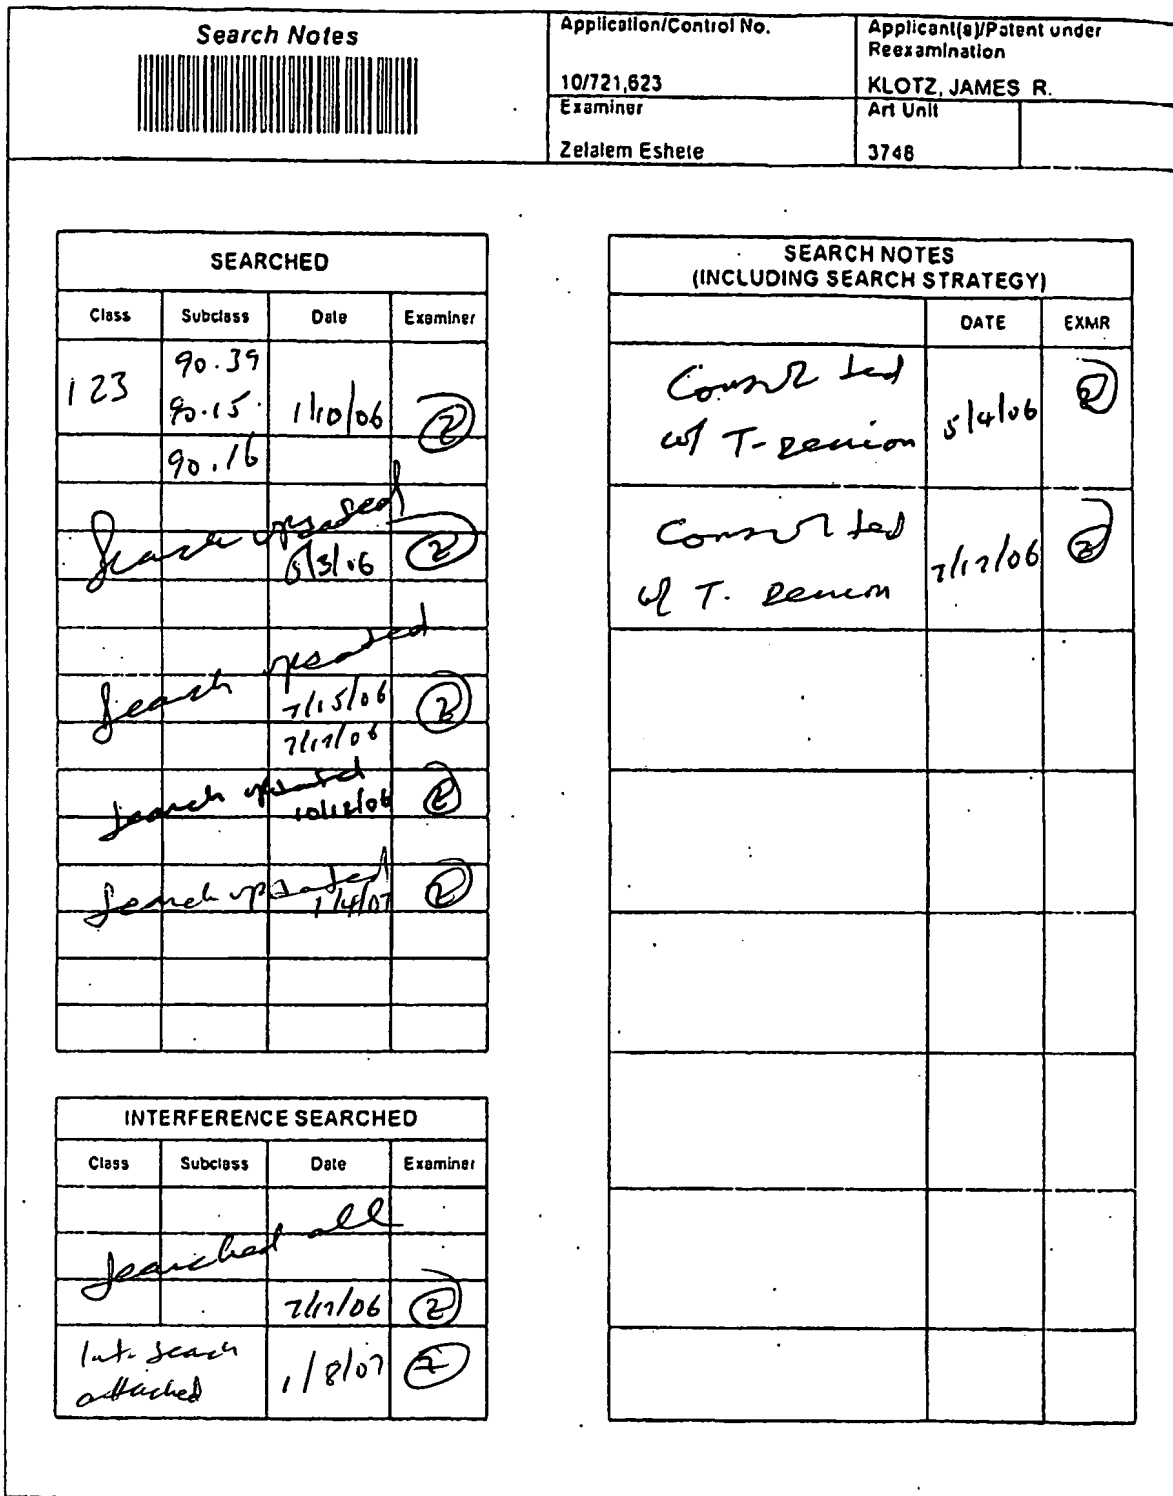 Search Notes
Application/Control No.
10/721,623
Applicant(s)/Patent under
Reexamination
KLOTZ, JAMES R.
Examiner
Zelalem Eshete
Art Unit
3748
SEARCHED
Class Subclass Date Examiner
90.39
123 90.15 1/10/06 Z
90.16
Search updated
/3/06 Z
Search updated
7/15/06 Z
7/17/06
Search updated
10/12/06 Z
Search updated
1/4/07 Z
INTERFERENCE SEARCHED
Class Subclass Date Examiner
Searched all
7/17/06 Z
Int. Search
attached 1/8/07 Z
SEARCH NOTES
(INCLUDING SEARCH STRATEGY)
DATE EXMR
Consulted
w/ T. Denion 5/4/06 Z
Consulted
w/ T. Denion 7/17/06 Z